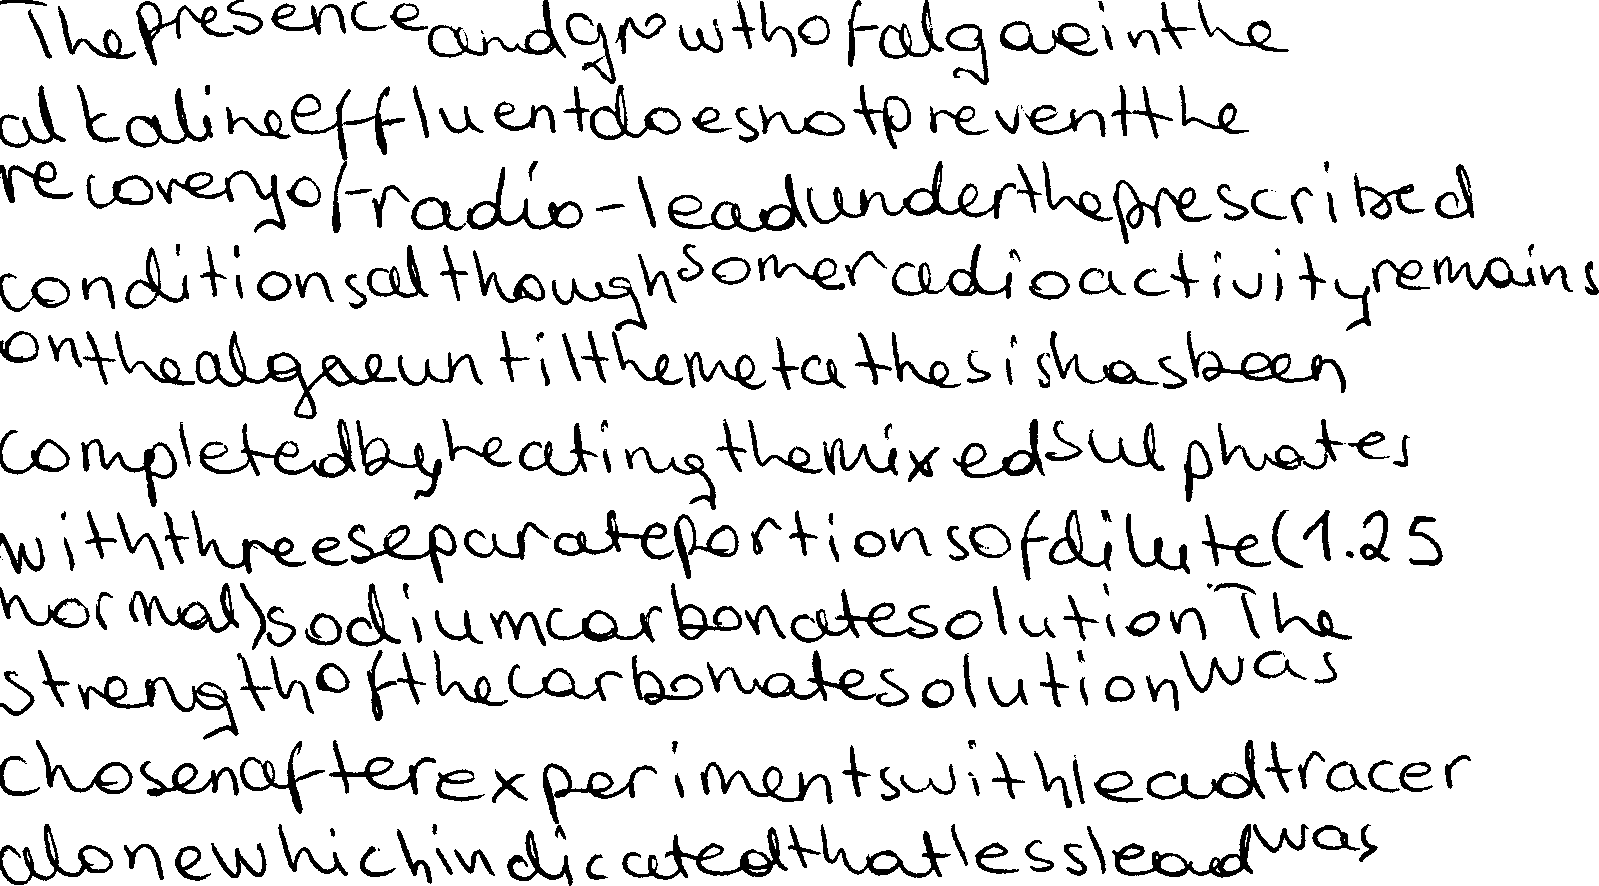 The presence and growth of algae in the
alkaline effluent does not prevent the
recovery of radio-lead under the prescribed
conditions although some radioactivity remains
on the algae until the metathesis has been
completed by heating the mixed sulphates
with three separate portions of dilute (1.25
normal) sodium carbonate solution The
strength of the carbonate solution was
chosen after experiments with lead tracer
alone which indicated that less lead was